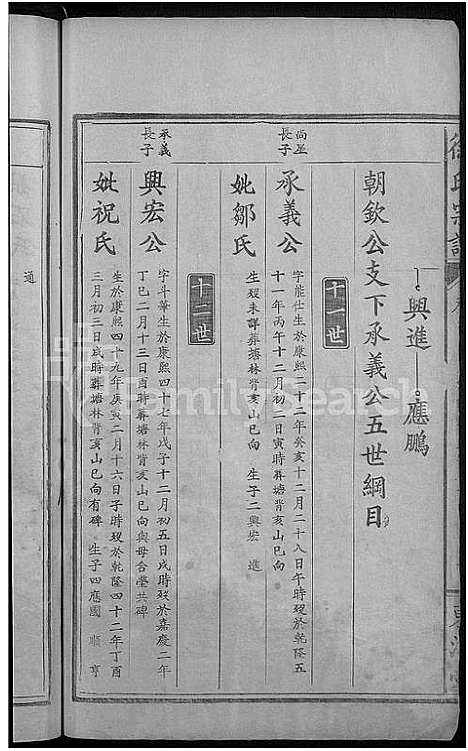 徐氏宗譜
興進 應鵬
朝欽公支下承義公五世綱目
十一世
長子
承義公
字能士生於康熙二十二年癸亥十二月二十八日午時歿於乾隆五
十一年丙午十二月初一日寅時葬塘背亥山巳向
妣鄒氏
生歿未詳葬塘林背亥山巳向 生子二興宏 進
十二世
承義
長子
興宏公
字斗華生於康熙四十七年戊子十二月初五日戌時歿於嘉慶二年
丁巳二月十三日酉時葬塘林背亥山巳向與母合塋共碑
妣祝氏
生於康熙四十九年庚寅二月十六日子時歿於乾隆四十二年丁酉
三月初三日戌時葬塘林背亥山巳向有碑 生子四應國 順 亨
通
FamilySearch